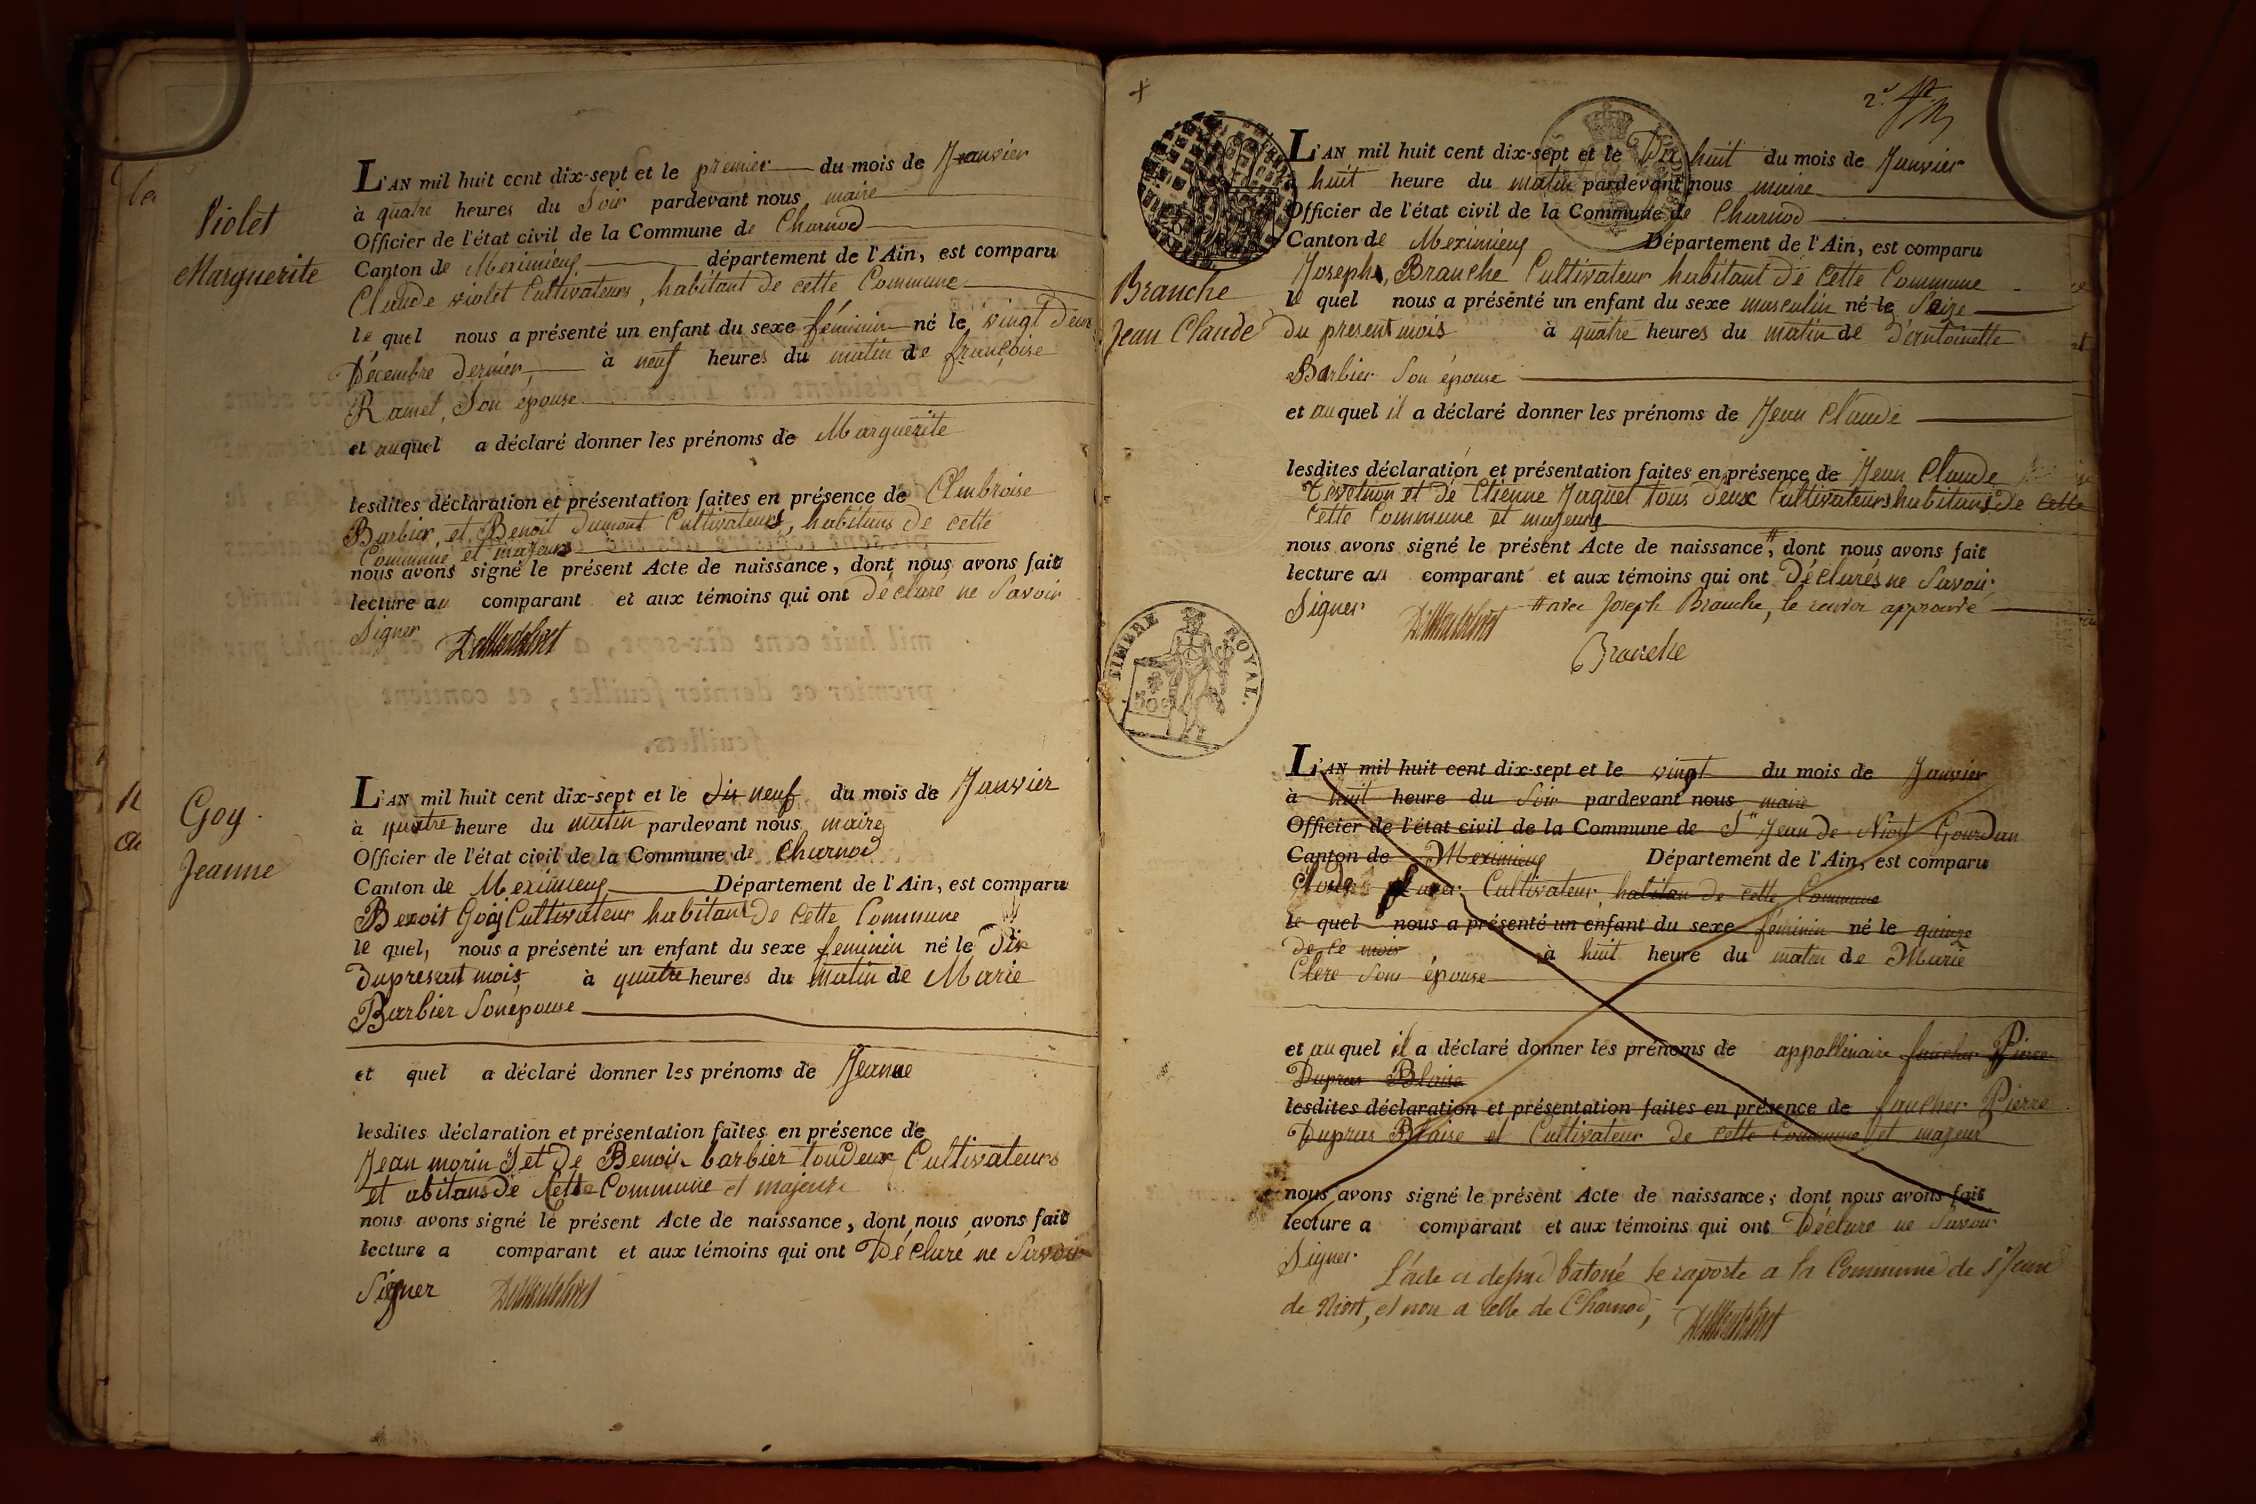 Violet
Marguerite
L'AN mil huit cent dix-sept et le premier du mois de Janvier
à quatre heures du Soir pardevant nous maire
Officier de l'état civil de la Commune de Charnod
Canton de Meximieug département de l'Ain, est comparu
Claude violet Cultivateurs, habitant de cette Commune
le quel nous a présenté un enfant du sexe féminin né le vingt deux
Décembre dernier à neuf heures du matin de françoise
Ramel, Son épouse
et auquel a déclaré donner les prénoms de Marguerite
lesdites déclaration et présentation faites en présence de Ambroise
Barbier, et Benoit Dumont Cultivateurs, habitans de cette
Commune et majeurs
nous avons signé le présent Acte de naissance, dont nous avons fait
lecture au comparant et aux témoins qui ont déclaré ne Savoir
Signer
Goy
Jeanne
L'AN mil huit cent dix-sept et le dix neuf du mois de Janvier
à quatre heure du matin pardevant nous maire
Officier de l'état civil de la Commune de Charnod
Canton de Meximieug Département de l'Ain, est comparu
Benoit Goy Cultivateur habitant de cette Commune
le quel, nous a présenté un enfant du sexe feminin né le Dix
Dupresent mois à quatre heures du matin de Marie
Barbier Son épouse
et quel a déclaré donner les prénoms de Jeanne
lesdites déclaration et présentation faites en présence de
Jean morin et de Benoit barbier toudeux Cultivateurs
et abitans de Cette Commune et majeurs
nous avons signé le présent Acte de naissance, dont nous avons fait
lecture a comparant et aux témoins qui ont Déclaré ne Savoir
Signer
2e
TIMBRE ROYAL.
Branche
Jean Claude
L'AN mil huit cent dix-sept et le Dix huit du mois de Janvier
à huit heure du matin pardevant nous maire
Officier de l'état civil de la Commune de Charnod
Canton de Meximieug Département de l'Ain, est comparu
Joseph Branche Cultivateur habitant de cette Commune
le quel nous a présenté un enfant du sexe musculin né le Seize
du present mois à quatre heures du matin de d'antoinette
Barbier Son épouse
et auquel il a déclaré donner les prénoms de Jean Claude
lesdites déclaration et présentation faites en présence de Jean Claude
et de Etienne Juquet tous deux Cultivateurs habitans de cette
Cette Commune et majeurs
nous avons signé le présent Acte de naissance,# dont nous avons fait
lecture au comparant et aux témoins qui ont Déclarés ne Savoir
Signer # avec Joseph Branche, le renvoi approuvé
Branche
L'AN mil huit cent dix-sept et le vingt du mois de Janvier
à huit heure du Soir pardevant nous maire
Officier de l'état civil de la Commune de St Jean de Niost Gourdan
Canton de Meximieug Département de l'Ain, est comparu
Cultivateur, habitan de cette Commune
le quel nous a présenté un enfant du sexe féminin né le quinze
de ce mois à huit heure du matin de Marie
Clere Son épouse
et auquel il a déclaré donner les prénoms de appollinaire faucher Pierre
Dupras Blaise
lesdites déclaration et présentation faites en présence de faucher Pierre
Dupras Blaise et Cultivateur de cette Commune et majeur
nous avons signé le présent Acte de naissance, dont nous avons fait
lecture a comparant et aux témoins qui ont Déclare ne Savoir
Signer
L'acte ci dessus batoné se raporte a la Commune de St Jean
de Niost, et non a celle de Charnod,